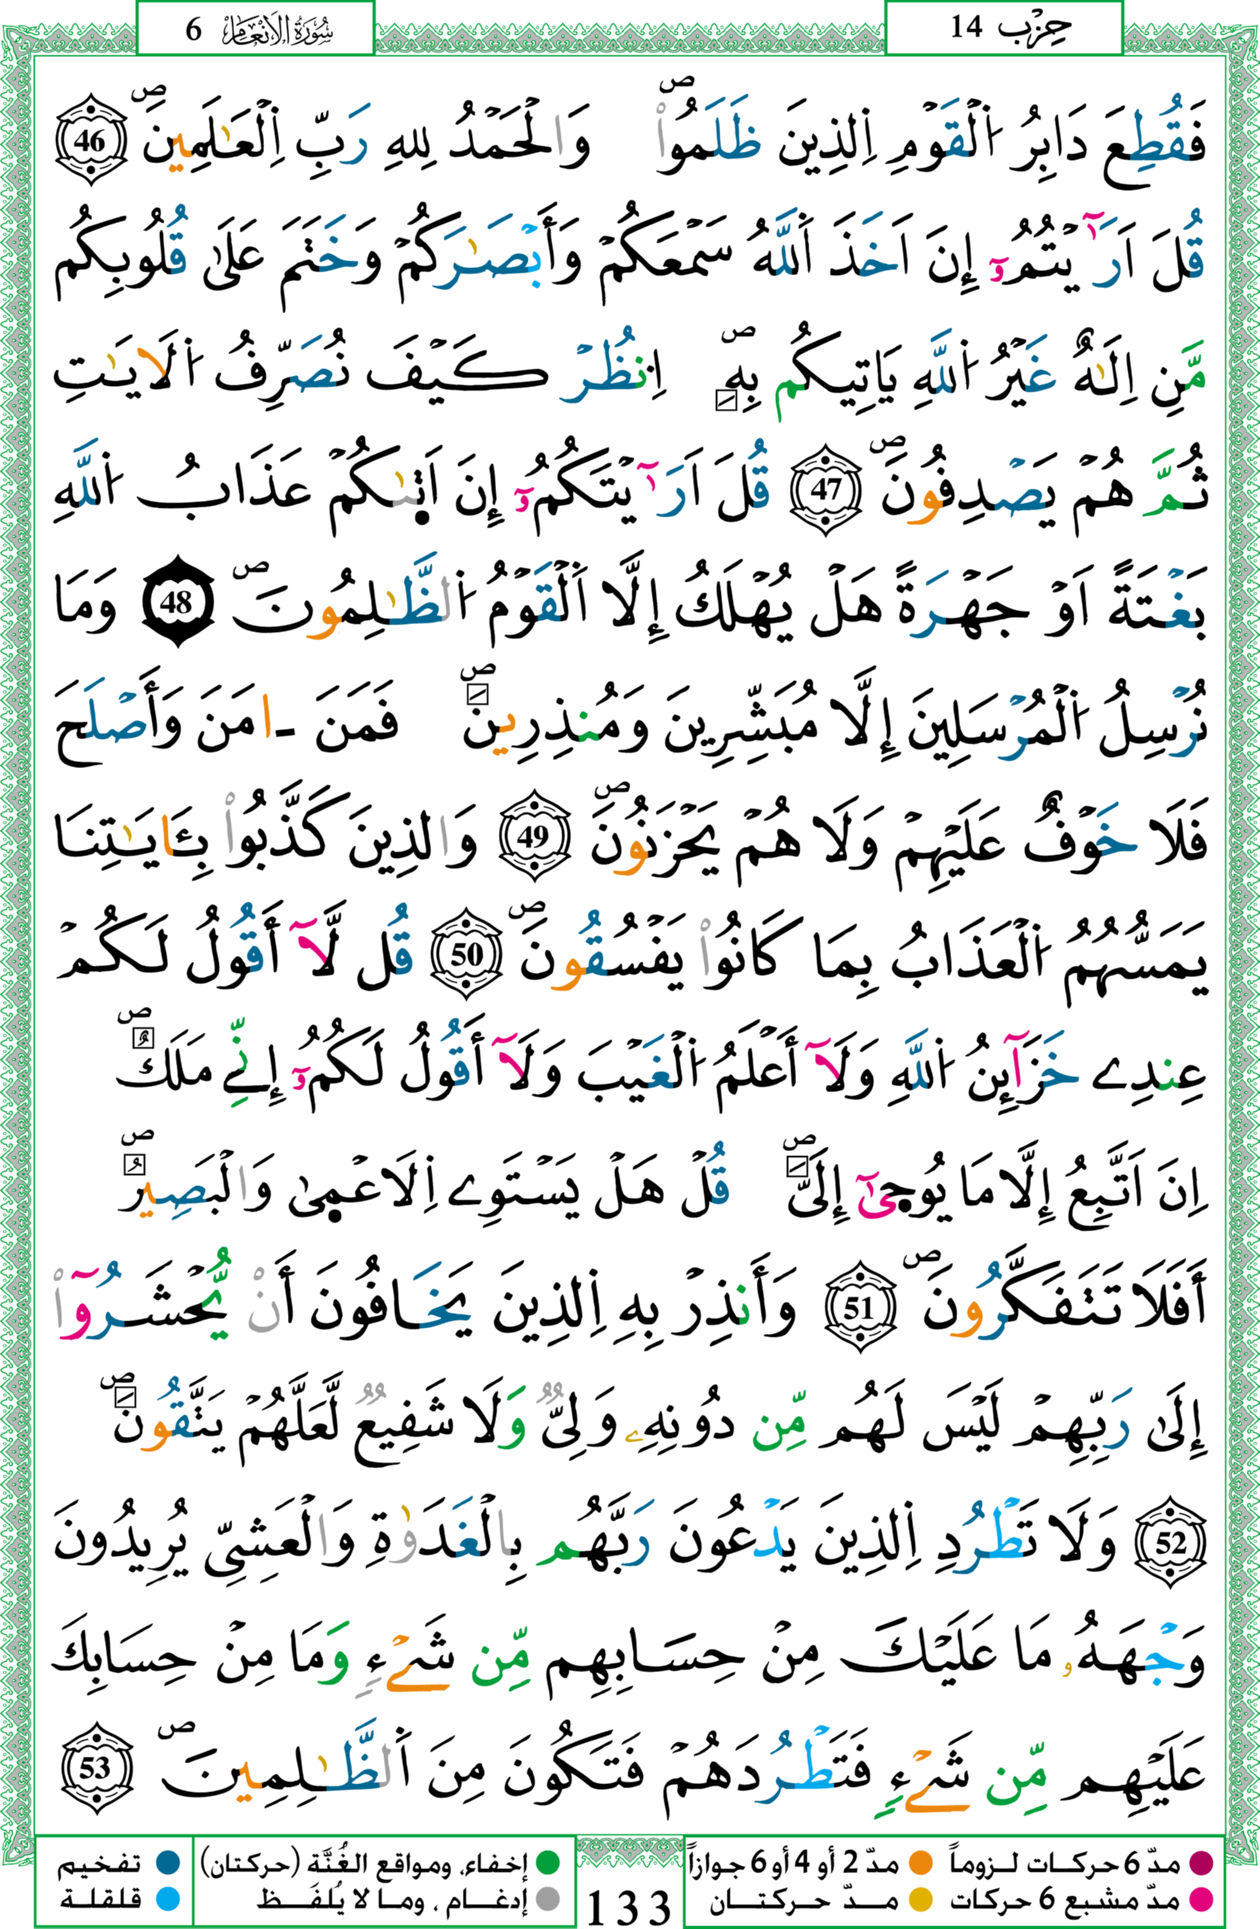 حِزْب 14
سُورَةُ الأَنْعَام 6
فَقُطِعَ دَابِرُ اُ۬لْقَوْمِ اِ۬لذِينَ ظَلَمُواْۖ وَالْحَمْدُ لِلهِ رَبِّ اِ۬لْعَٰلَمِينَۖ 46
قُلَ اَرَٰٓيْتُمُۥٓ إِنَ اَخَذَ اَ۬للَّهُ سَمْعَكُمْ وَأَبْصَٰرَكُمْ وَخَتَمَ عَلَىٰ قُلُوبِكُم
مَّنِ اِلَٰهٌ غَيْرُ اُ۬للَّهِ يَاتِيكُم بِهِۖ اِ۟نظُرْ كَيْفَ نُصَرِّفُ اُ۬لَايَٰتِ
ثُمَّ هُمْ يَصْدِفُونَۖ 47 قُلَ اَرَٰٓيْتَكُمُۥٓ إِنَ اَت۪ىٰكُمْ عَذَابُ اُ۬للَّهِ
بَغْتَةً اَوْ جَهْرَةً هَلْ يُهْلَكُ إِلَّا اَ۬لْقَوْمُ اُ۬لظَّٰلِمُونَۖ 48 وَمَا
نُرْسِلُ اُ۬لْمُرْسَلِينَ إِلَّا مُبَشِّرِينَ وَمُنذِرِينَۖ فَمَنَ ـ‍امَنَ وَأَصْلَحَ
فَلَا خَوْفٌ عَلَيْهِمْ وَلَا هُمْ يَحْزَنُونَۖ 49 وَالذِينَ كَذَّبُواْ بِـَٔايَٰتِنَا
يَمَسُّهُمُ اُ۬لْعَذَابُ بِمَا كَانُواْ يَفْسُقُونَۖ 50 قُل لَّآ أَقُولُ لَكُمْ
عِندِے خَزَآئِنُ اُ۬للَّهِ وَلَآ أَعْلَمُ اُ۬لْغَيْبَ وَلَآ أَقُولُ لَكُمُۥٓ إِنِّے مَلَكٌۖ
اِنَ اَتَّبِعُ إِلَّا مَا يُوح۪ىٰٓ إِلَيَّۖ قُلْ هَلْ يَسْتَوِے اِ۬لَاعْم۪ىٰ وَالْبَصِيرُۖ
أَفَلَا تَتَفَكَّرُونَۖ 51 وَأَنذِرْ بِهِ اِ۬لذِينَ يَخَافُونَ أَنْ يُّحْشَرُوٓاْ
إِلَىٰ رَبِّهِمْ لَيْسَ لَهُم مِّن دُونِهِۦ وَلِيٌّ وَلَا شَفِيعٌ لَّعَلَّهُمْ يَتَّقُونَۖ
52 وَلَا تَطْرُدِ اِ۬لذِينَ يَدْعُونَ رَبَّهُم بِالْغَدَوٰةِ وَالْعَشِيِّ يُرِيدُونَ
وَجْهَهُۥ مَا عَلَيْكَ مِنْ حِسَابِهِم مِّن شَےْءٖ وَمَا مِنْ حِسَابِكَ
عَلَيْهِم مِّن شَےْءٖ فَتَطْرُدَهُمْ فَتَكُونَ مِنَ اَ۬لظَّٰلِمِينَۖ 53
مدّ 6 حركات لـزوماً مدّ 2 أو 4 أو 6 جوازاً
مدّ مشبع 6 حركات مـدّ حـركتـان
133
إخفاء، ومواقع الغُنَّة (حركتان) تفخيم
إدغـام ، ومـا لا يُلفَـظ قلقلـة